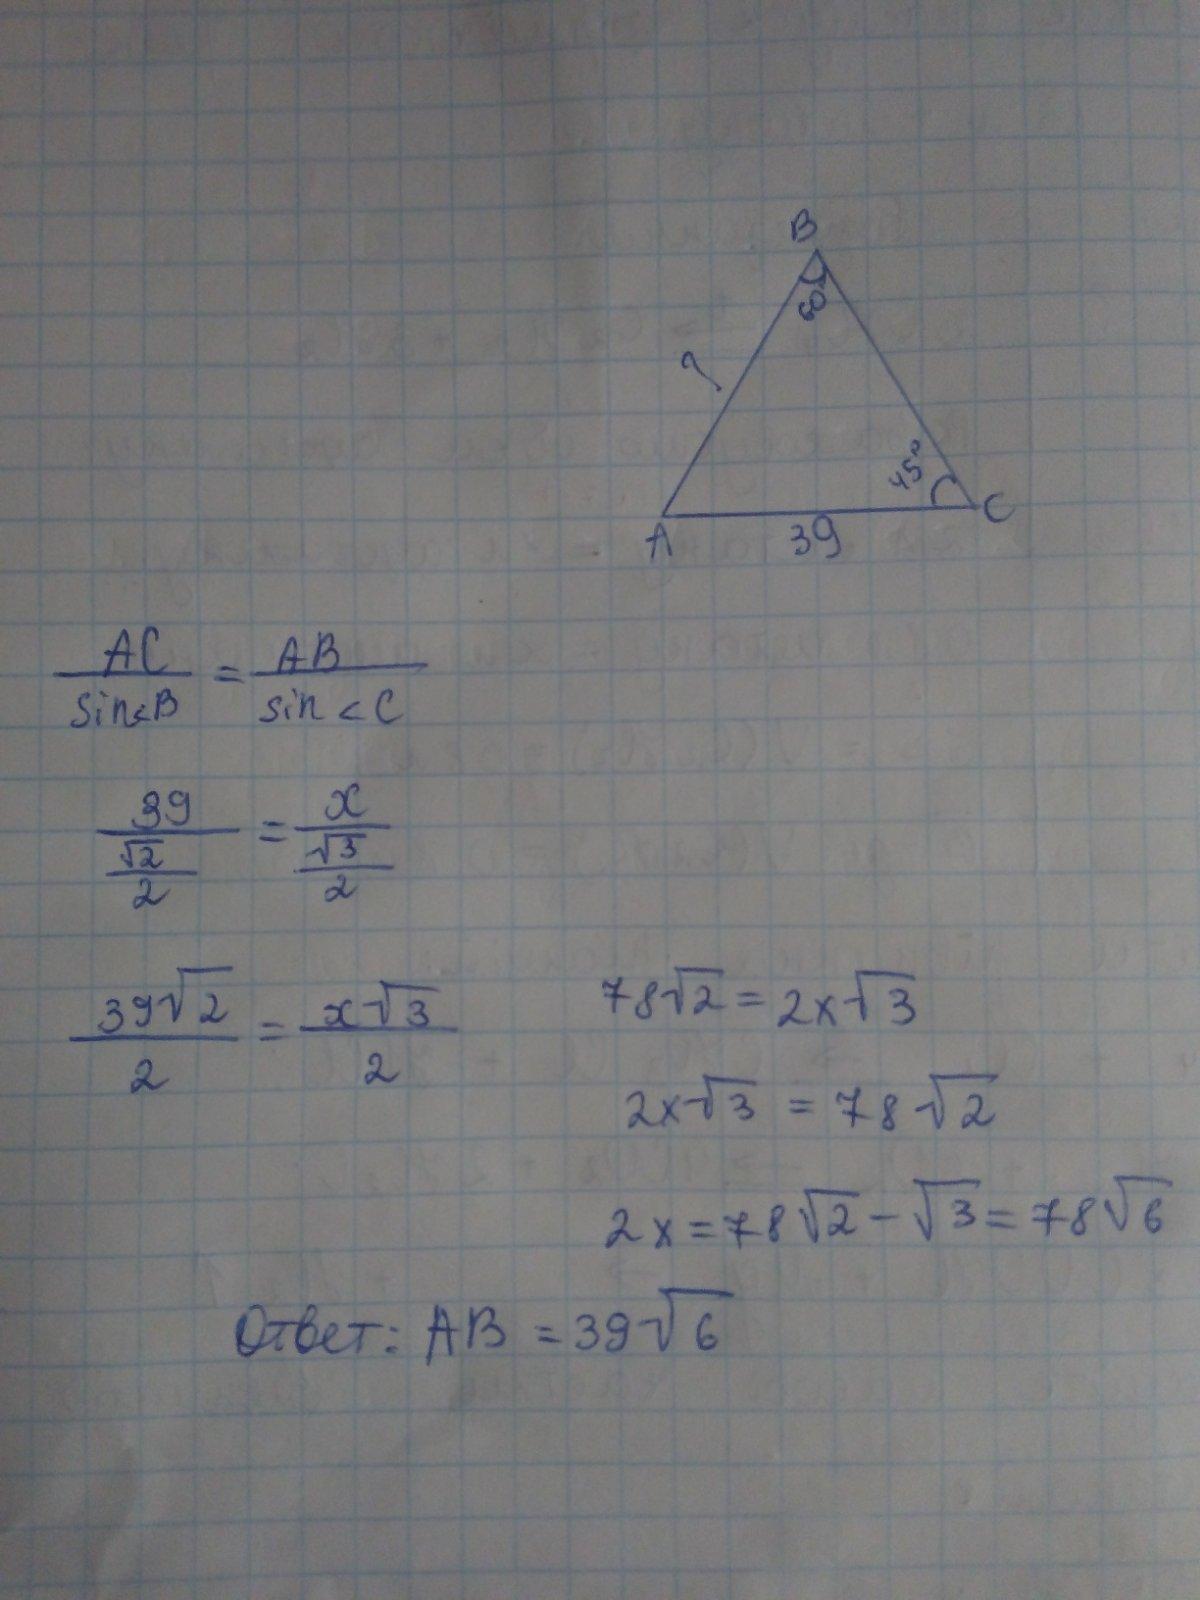 B
60°
?
45°
A
39
C
AC/sin<B = AB/sin<C
39/(√2/2) = x/(√3/2)
39√2/2 = x√3/2
78√2 = 2x√3
2x√3 = 78√2
2x = 78√2 - √3 = 78√6
Ответ: AB = 39√6